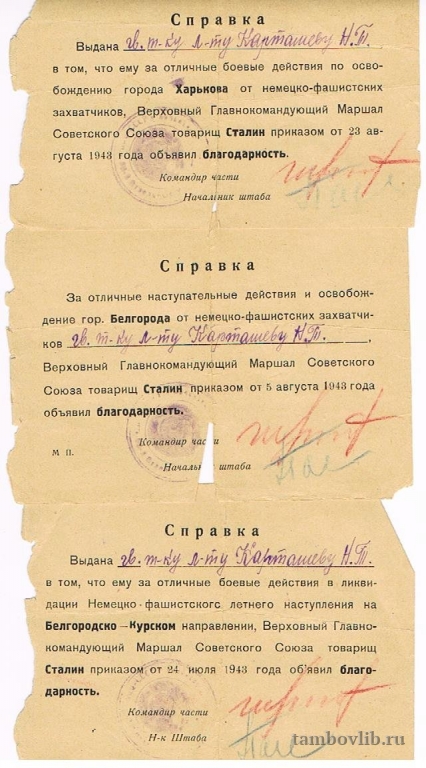 Справка
Выдана гв. т-ку л-ту Карташеву Н.Т.
в том, что ему за отличные боевые действия по осво-
бождению города Харькова от немецко-фашистских
захватчиков, Верховный Главнокомандующий Маршал
Советского Союза товарищ Сталин приказом от 23 ав-
густа 1943 года объявил благодарность.
Командир части
Начальник штаба
Справка
За отличные наступательные действия и освобож-
дение гор. Белгорода от немецко-фашистских захватчи-
ков гв. т-ку л-ту Карташеву Н.Т.,
Верховный Главнокомандующий Маршал Советского
Союза товарищ Сталин приказом от 5 августа 1943 года
объявил благодарность.
Командир части
М П.
Начальник штаба
Справка
Выдана гв. т-ку л-ту Карташеву Н.Т.
в том, что ему за отличные боевые действия в ликви-
дации Немецко-фашистского летнего наступления на
Белгородско-Курском направлении, Верховный Главно-
командующий Маршал Советского Союза товарищ
Сталин приказом от 24 июля 1943 года об'явил благо-
дарность.
Командир части
Н-к Штаба
tambovlib.ru